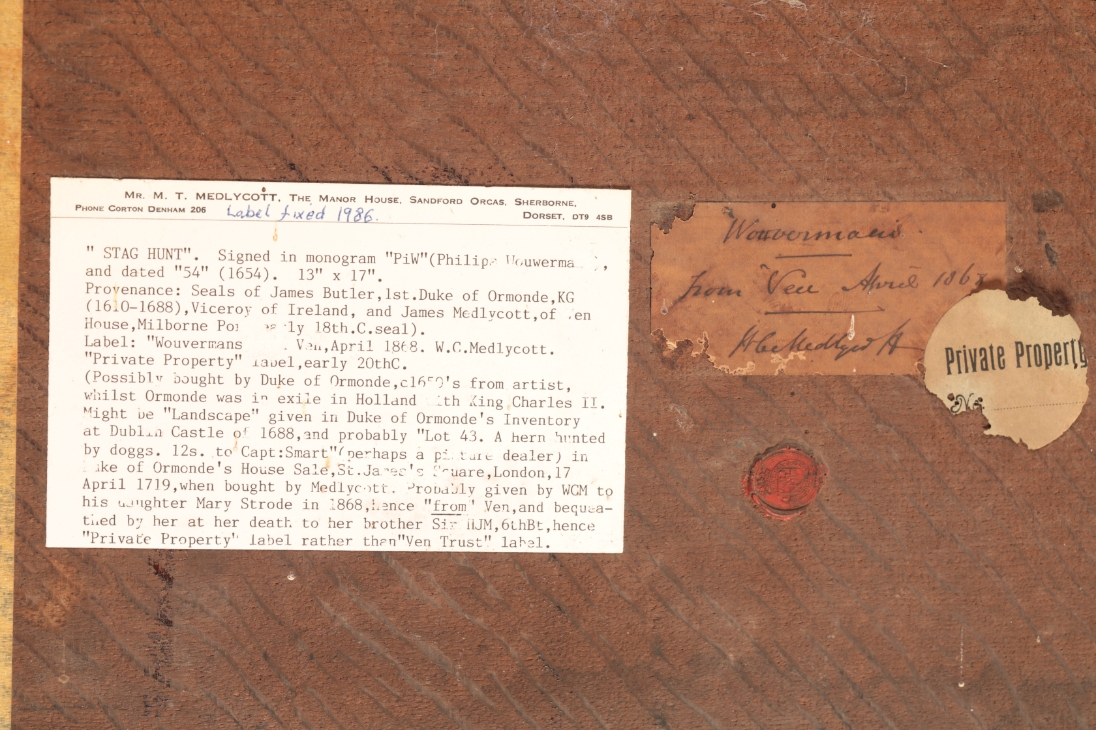 MR. M. T. MEDLYCOTT, THE MANOR HOUSE, SANDFORD ORCAS, SHERBORNE,
PHONE CORTON DENHAM 206 Label fixed 1986. DORSET, DT9 4SB
" STAG HUNT". Signed in monogram "PiW"(Philips Wouwerma ),
and dated "54" (1654). 13" x 17".
Provenance: Seals of James Butler,1st.Duke of Ormonde,KG
(1610-1688),Viceroy of Ireland, and James Medlycott,of Ven
House,Milborne Por rly 18th.C.seal).
Label: "Wouvermans Ven,April 1868. W.C.Medlycott.
"Private Property" label,early 20thC.
(Possibly bought by Duke of Ormonde,c1650's from artist,
whilst Ormonde was in exile in Holland with King Charles II.
Might be "Landscape" given in Duke of Ormonde's Inventory
at Dublin Castle of 1688,and probably "Lot 43. A hern hunted
by doggs. 12s. to Capt:Smart"(perhaps a picture dealer) in
Duke of Ormonde's House Sale,St.James's Square,London,17
April 1719,when bought by Medlycott. Probably given by WGM to
his daughter Mary Strode in 1868,hence "from" Ven,and bequea-
thed by her at her death to her brother Sir HJM,6thBt,hence
"Private Property" label rather than"Ven Trust" label.
Wouvermans
from Ven April 186
Medlycott
Private Property
No.